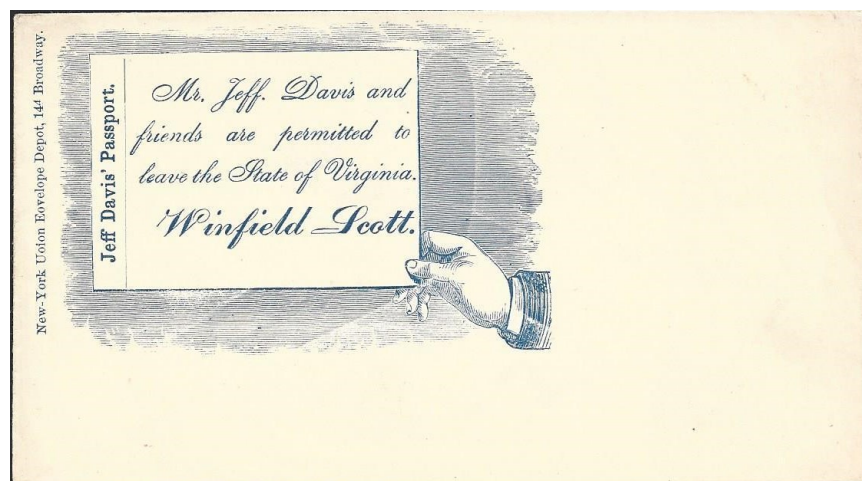 New-York Uoion Eovelope Depot, 144 Broadway.
Jeff Davis' Passport.
Mr. Jeff. Davis and
friends are permitted to
leave the State of Virginia.
Winfield Scott.